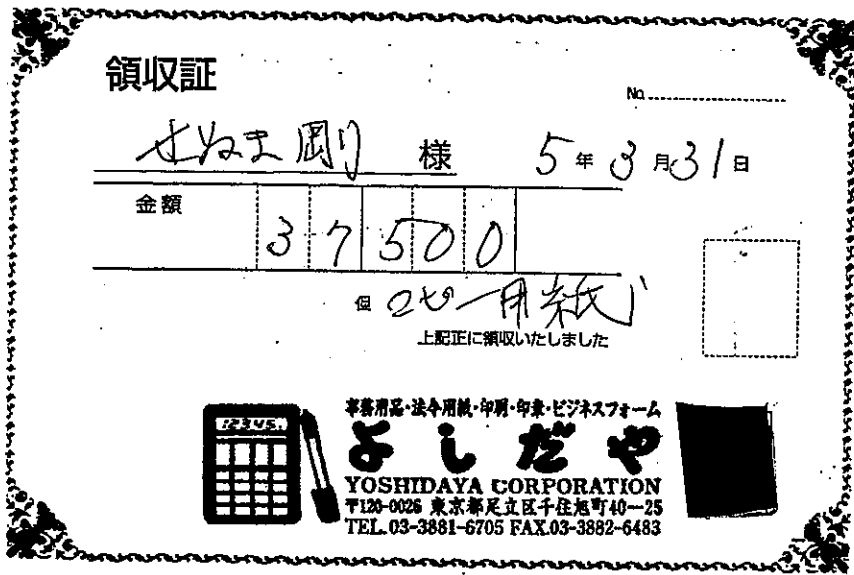 領収証
No.
せぬま剛 様 5年3月31日
金額
37500
但 コピー用紙
上記正に領収いたしました
12345.
事務用品・法令用紙・印刷・印章・ビジネスフォーム
よしだや
YOSHIDAYA CORPORATION
〒120-0026 東京都足立区千住旭町40-25
TEL.03-3881-6705 FAX.03-3882-6483